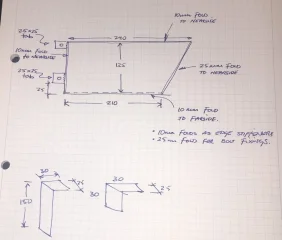 290
10mm FOLD
TO NEARSIDE
25x25
TAB
10mm FOLD
TO NEARSIDE
125
25mm FOLD
TO NEARSIDE
25x25
TAB
25
210
10mm FOLD
TO FARSIDE
• 10mm FOLDS AS EDGE STIFFENERS
• 25mm FOLD FOR BOLT FIXINGS.
30
25
150
30
30
25